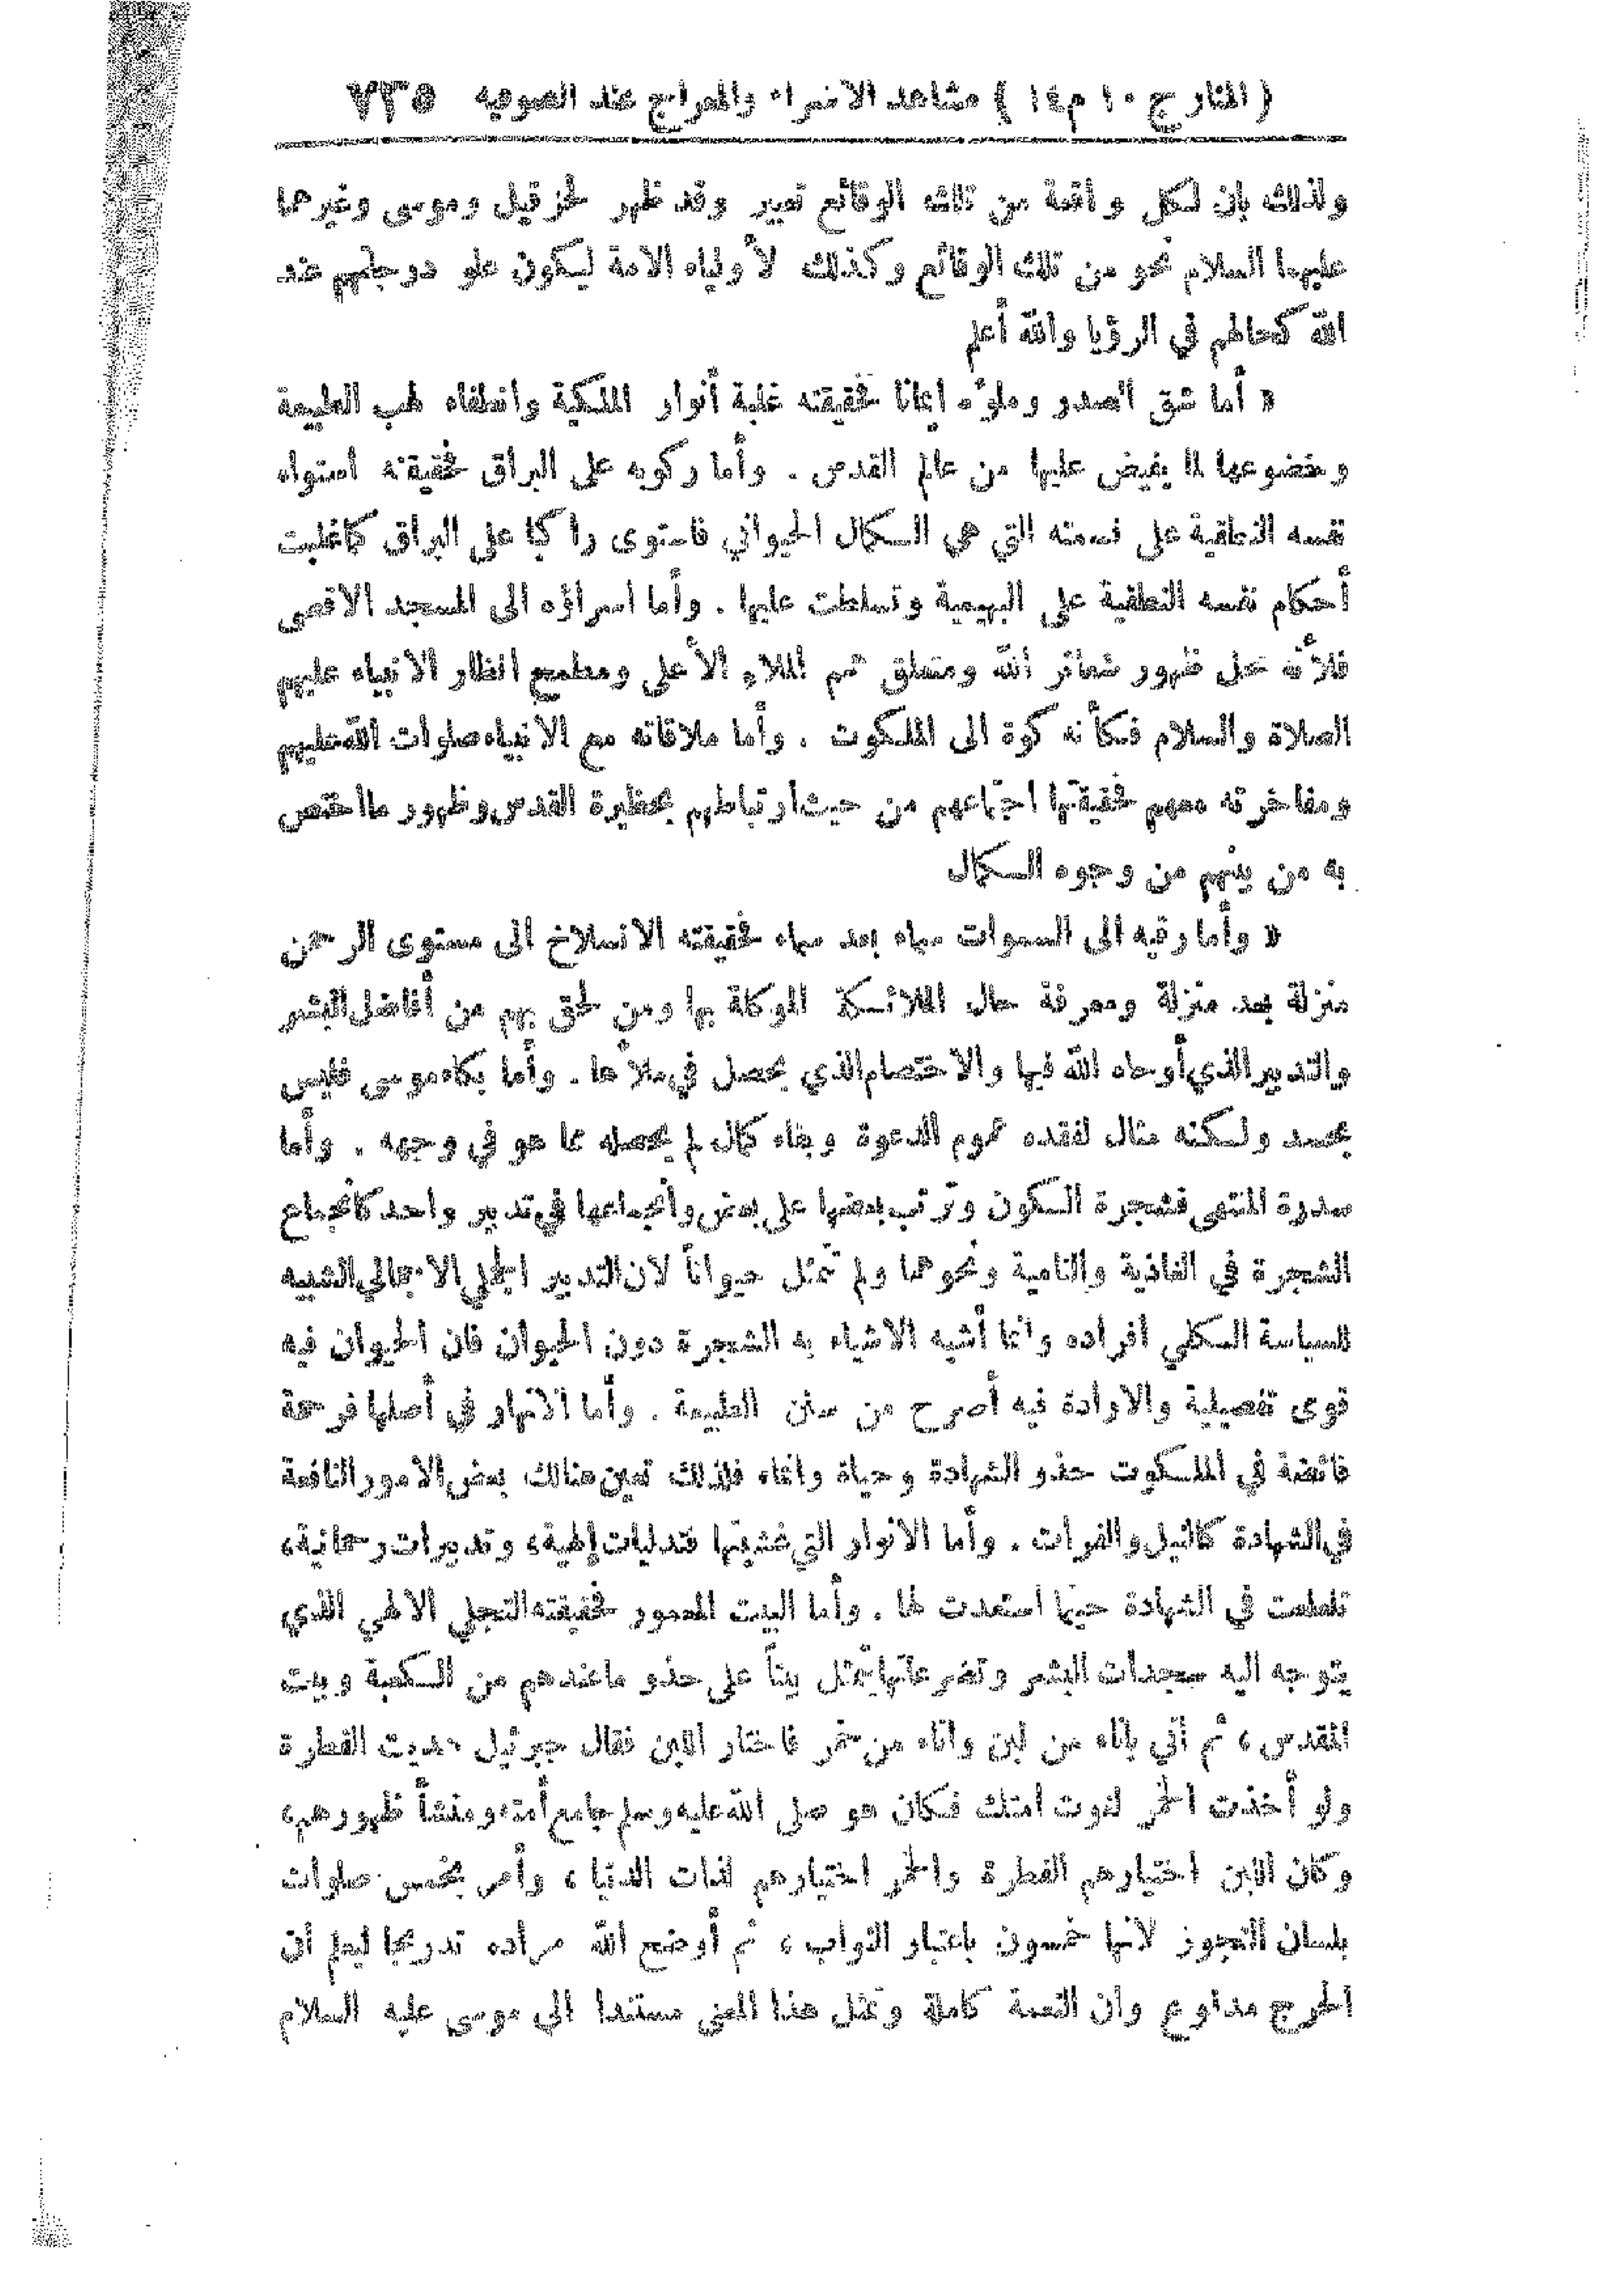 ( المنار ج ١٠ م ١٤ ) مشاهد الاسراء والمعراج عند الصوفية ٧٣٥
ولذلك بان لكل واقعة من تلك الوقائع تعبير وقد ظهر لحزقيل وموسى وغيرهما
عليهما السلام نحو من تلك الوقائع وكذلك لأولياء الامة ليكون علو درجاتهم عند
الله كحالهم في الرؤيا والله أعلم
« أما شق الصدر وملؤه ايمانا فحقيقته غلبة أنوار الملكية وانطفاء لهب الطبيعة
وخضوعها لما يفيض عليها من عالم القدس . وأما ركوبه على البراق فحقيقته استواء
نفسه النطقية على نسمته التي هي الكمال الحيواني فاستوى راكبا على البراق كما غلبت
أحكام نفسه النطقية على البهيمية وتسلطت عليها . وأما اسراؤه الى المسجد الاقصى
فلأنه محل ظهور شعائر الله ومتعلق همم الملاء الأعلى ومطمح انظار الانبياء عليهم
الصلاة والسلام فكأنه كوة الى الملكوت . وأما ملاقاته مع الانبياء صلوات الله عليهم
ومفاخرته معهم فحقيقتها اجتماعهم من حيث ارتباطهم بحظيرة القدس وظهور ما اختص
به من بينهم من وجوه الكمال
« وأما رقيه الى السموات سماء بعد سماء فحقيقته الانسلاخ الى مستوى الرحمن
منزلة بعد منزلة ومعرفة حال الملائكة الموكلة بها ومن لحق بهم من أفاضل البشر
والتدبير الذي أوحاه الله فيها والاختصام الذي يحصل في ملأها . وأما بكاء موسى فليس
بحسد ولكنه مثال لفقده عموم الدعوة وبقاء كمال لم يحصله مما هو في وجهه . وأما
سدرة المنتهى فشجرة الكون وترتب بعضها على بعض وانجماعها في تدبير واحد كانجماع
الشجرة في الغاذية والنامية ونحوهما ولم تمثل حيواناً لان التدبير الجملي الاجمالي الشبيه
للسياسة الكلي افراده وانما أشبه الاشياء به الشجرة دون الحيوان فان الحيوان فيه
قوى تفصيلية والارادة فيه أصرح من سنن الطبيعة . وأما الانهار في أصلها فرحمة
فائضة في الملكوت حذو الشهادة وحياة وانماء فلذلك تعين هنالك بعض الامور النافعة
في الشهادة كالنيل والفرات . وأما الانوار التي غشيتها فتدليات إلهية، وتدبيرات رحمانية،
تلعلعت في الشهادة حيثما استعدت لها . وأما البيت المعمور فحقيقته التجلي الالهي الذي
يتوجه اليه سجدات البشر وتضرعاتها يتمثل بيتاً على حذو ما عندهم من الكعبة وبيت
المقدس ، ثم أتي باناء من لبن واناء من خمر فاختار اللبن فقال جبرئيل هديت الفطرة
ولو أخذت الخمر لغوت امتك فكان هو صلى الله عليه وسلم جامع أمته ومنشأ ظهورهم،
وكان اللبن اختيارهم الفطرة والخمر اختيارهم لذات الدنيا ، وأمر بخمس صلوات
بلسان التجوز لانها خمسون باعتبار الثواب ، ثم أوضح الله مراده تدريجا ليعلم ان
الحرج مدفوع وان النعمة كاملة وتمثل هذا المعنى مستندا الى موسى عليه السلام